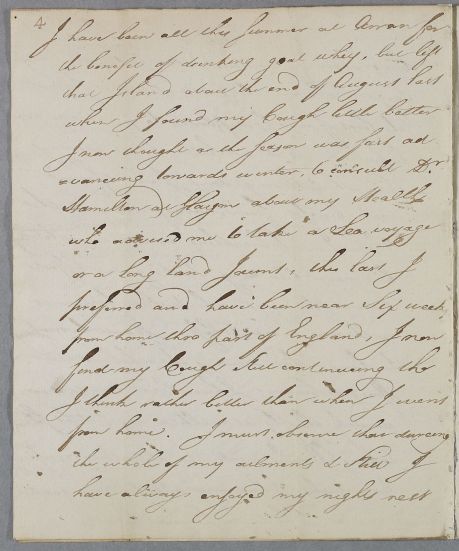 4
I have been all this Summer at Arran for
the benefit of drinking goat whey, but left
that Island about the end of August last
when I found my Cough little better
I now thought as the season was fast ad
=vancing towards winter, to consult Dr.
Hamilton at Glasgow about my Health
who advised me to take a Sea voyage
or a long land Journy, this last I
preferred and have been near Six week
from home throo part of England, I now
find my Cough still continueing tho
I think rather better than when I went
from home. I must observe that dureing
the whole of my ailments & still I
have always enjoyed my nights rest